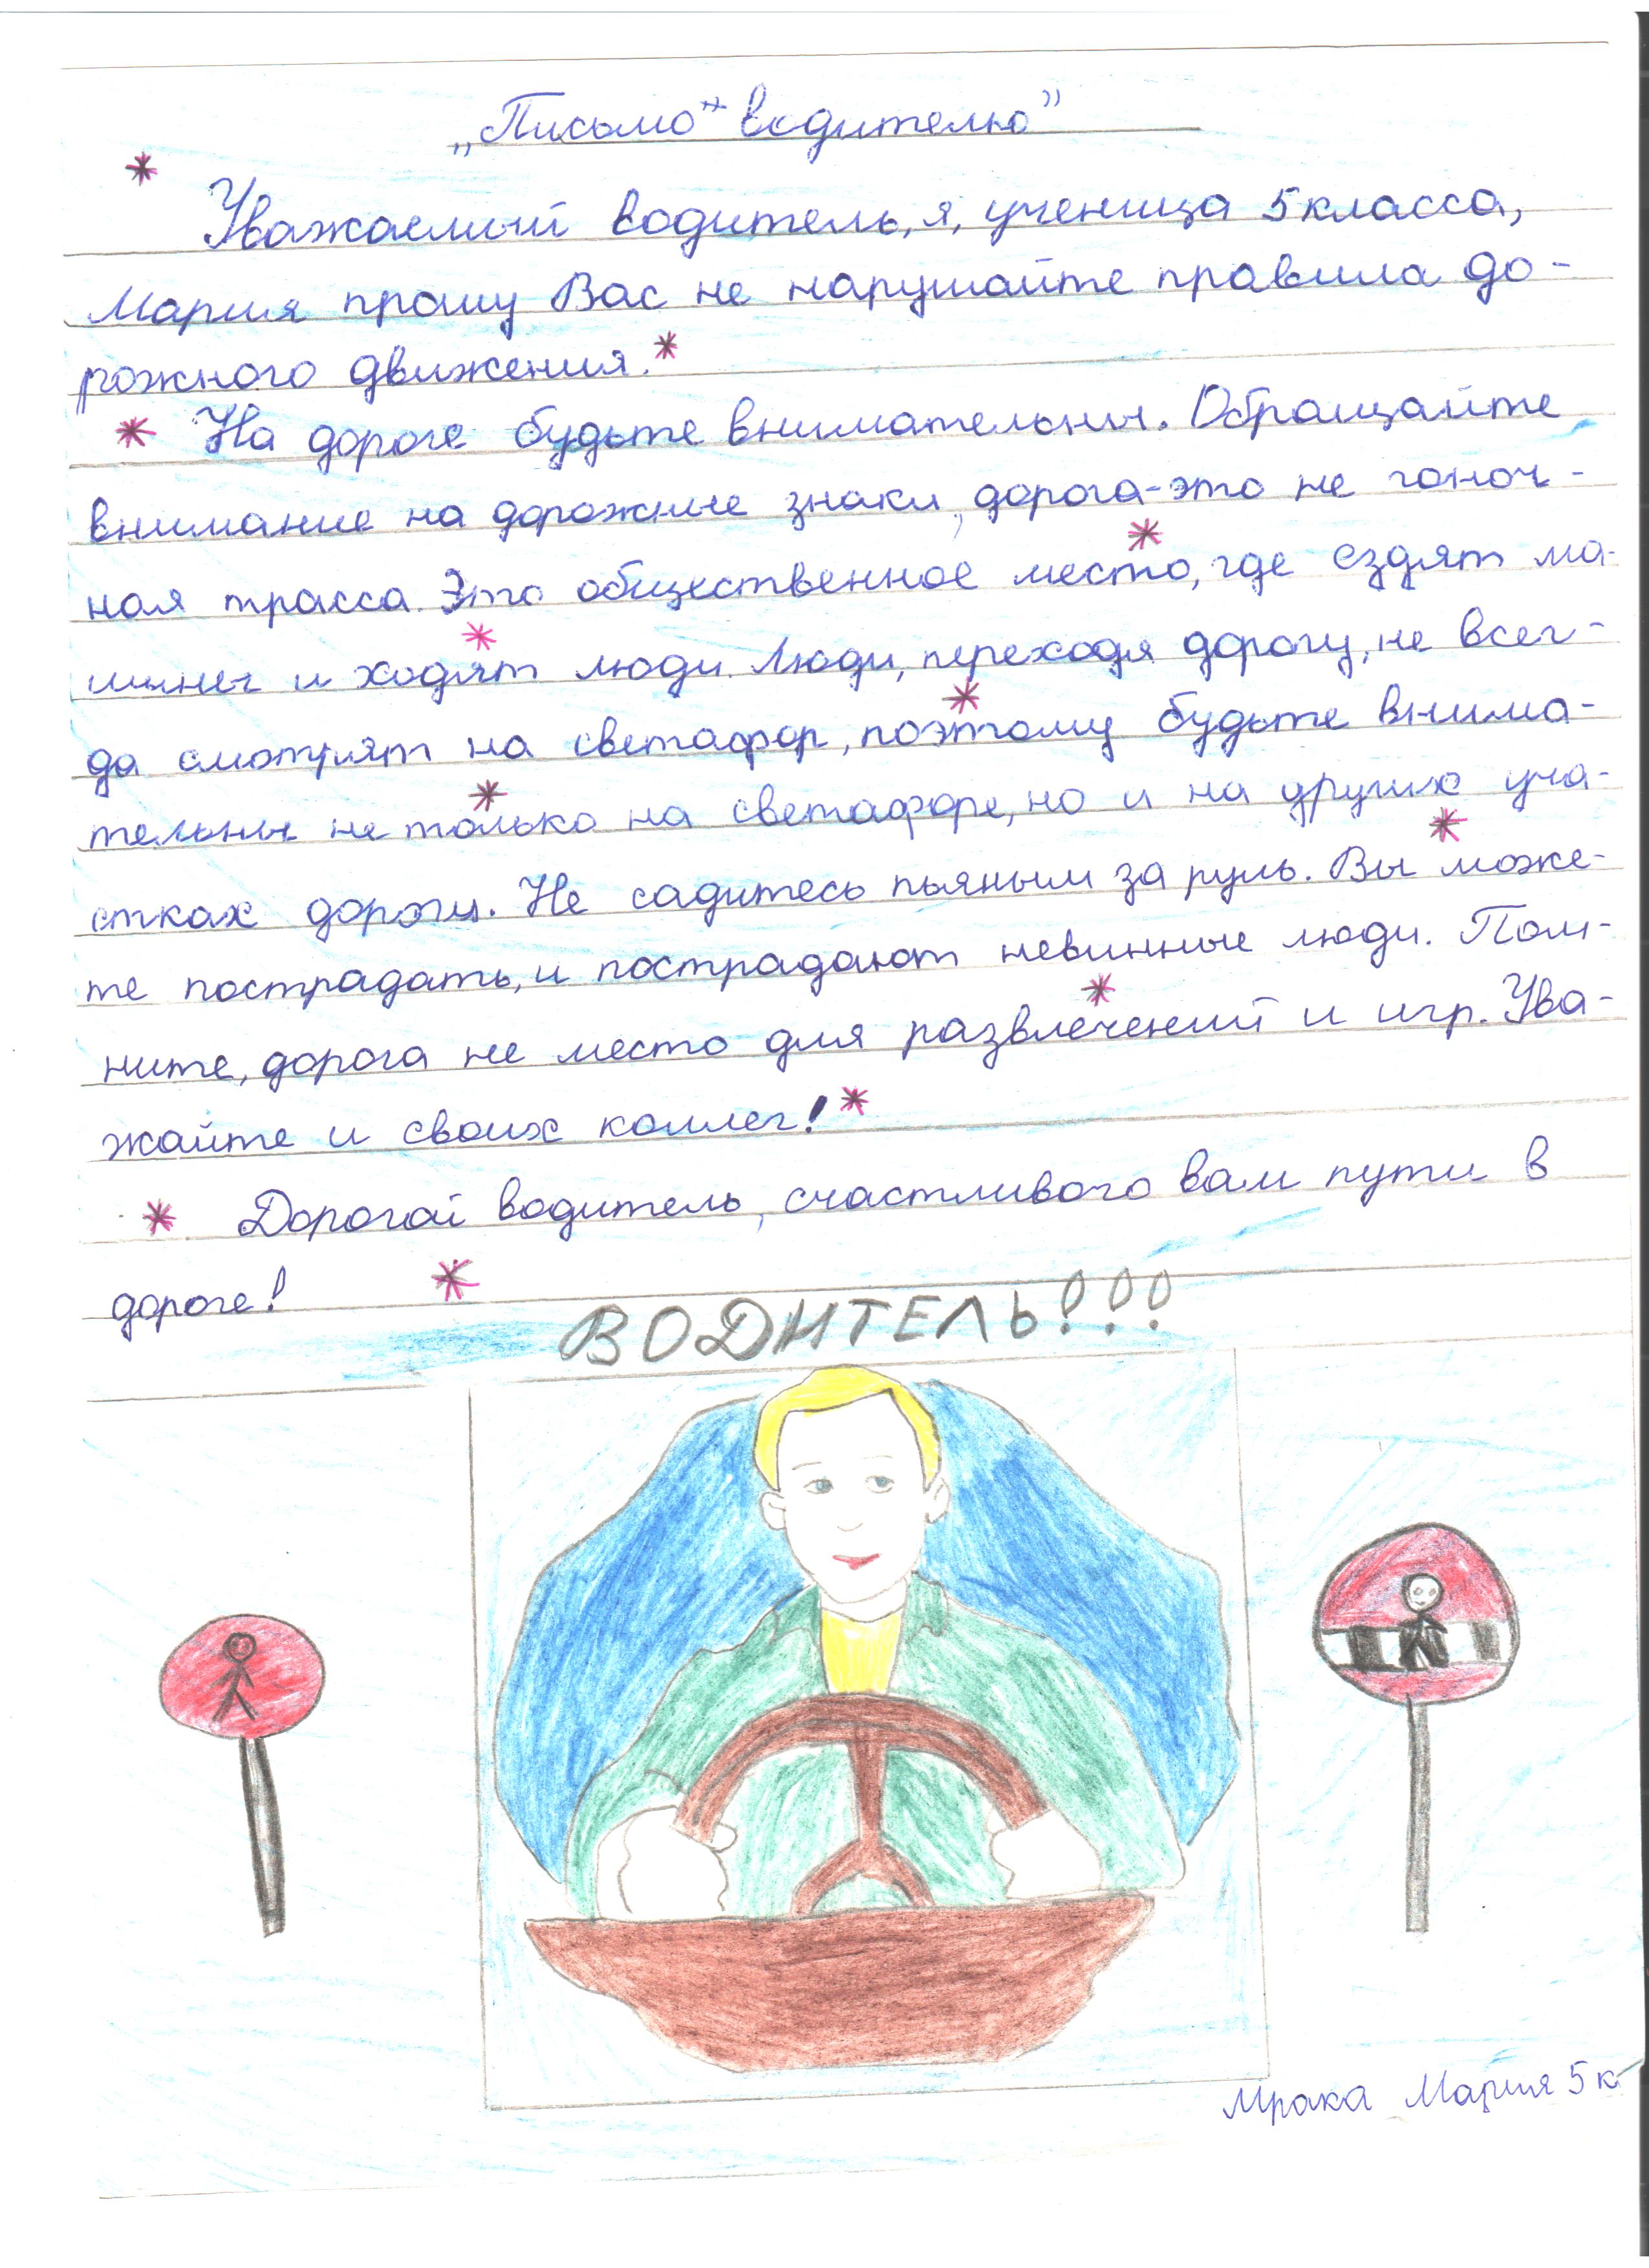 „Письмо водителю”
Уважаемый водитель, я, ученица 5 класса,
Мария прошу Вас не нарушайте правила до-
рожного движения.
На дороге будьте внимательны. Обращайте
внимание на дорожные знаки, дорога-это не гоноч-
ная трасса. Это общественное место, где ездят ма-
шины и ходят люди. Люди, переходя дорогу, не всег-
да смотрят на светафор, поэтому будьте внима-
тельны не только на светафоре, но и на других уча-
стках дороги. Не садитесь пьяным за руль. Вы може-
те пострадать, и пострадают невинные люди. Пом-
ните, дорога не место для развлечений и игр. Ува-
жайте и своих коллег!
Дорогой водитель, счастливого вам пути в
дороге!
ВОДИТЕЛЬ!!!
Мрака Мария 5 к